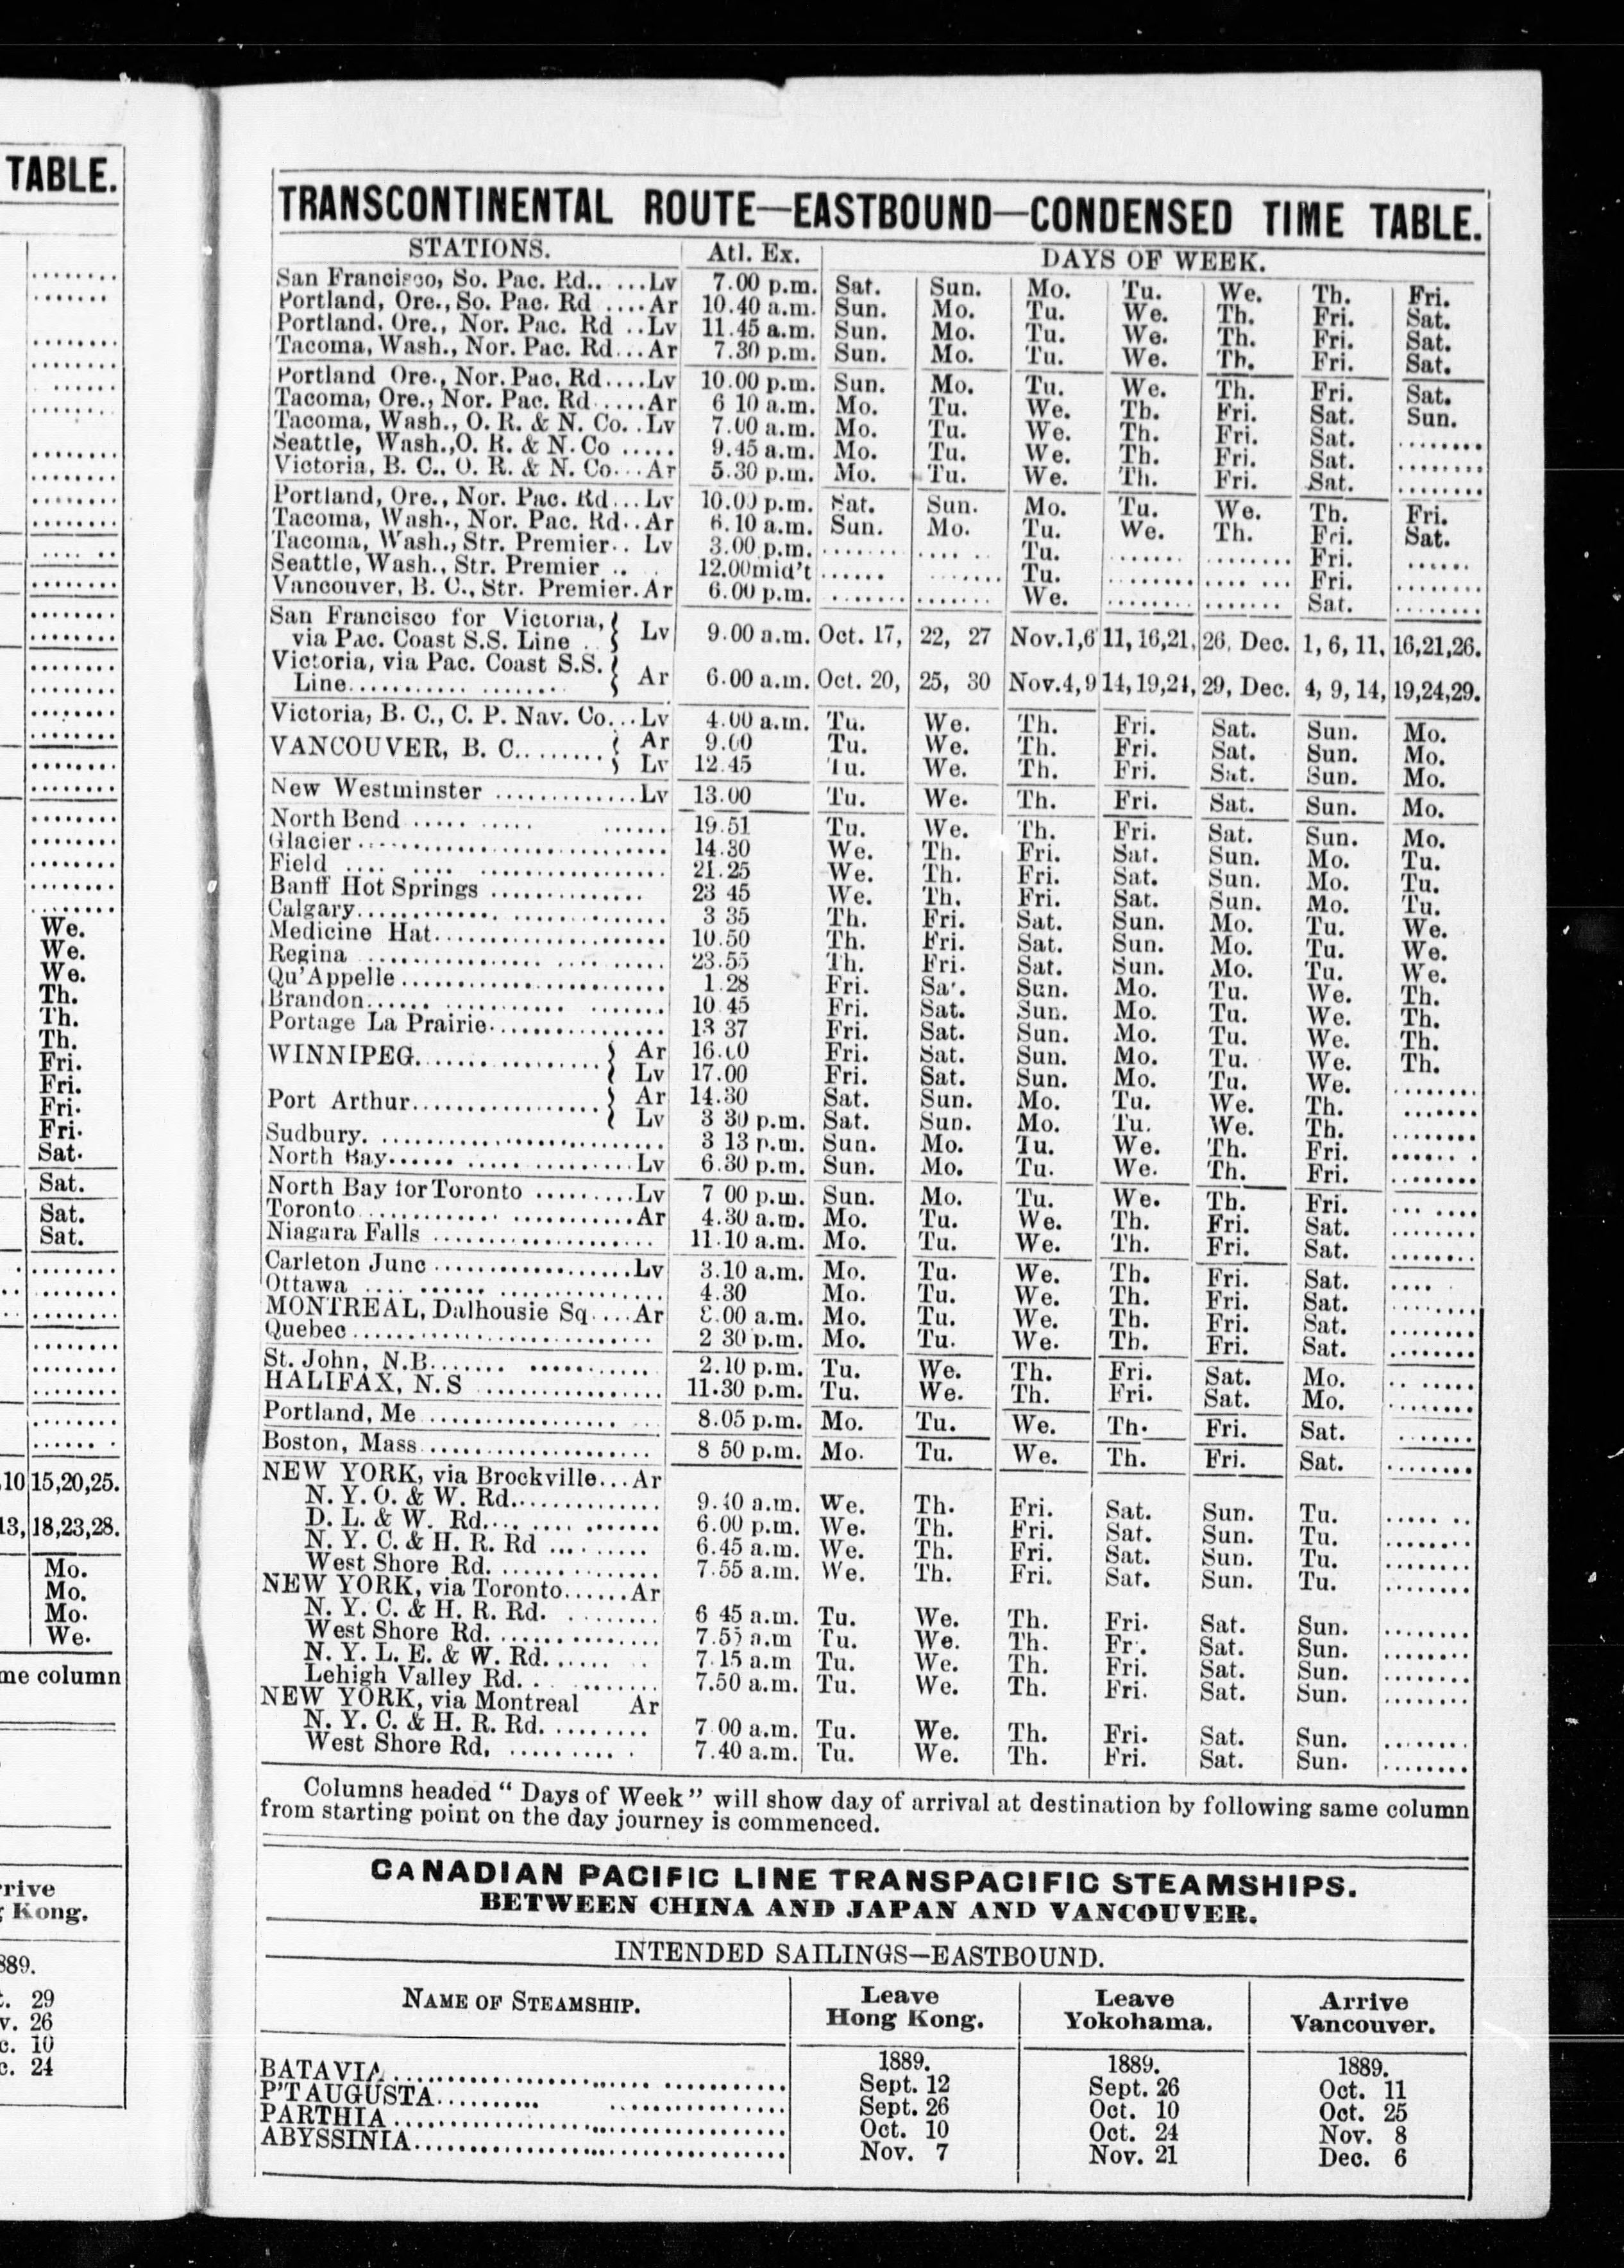 TABLE.
We.
We.
We.
Th.
Th.
Th.
Fri.
Fri.
Fri.
Fri.
Sat.
Sat.
Sat.
Sat.
10 15,20,25.
13, 18,23,28.
Mo.
Mo.
Mo.
We.
me column
rrive
Kong.
889.
29
v. 26
c. 10
c. 24
TRANSCONTINENTAL ROUTE—EASTBOUND—CONDENSED TIME TABLE.
STATIONS. Atl. Ex. DAYS OF WEEK.
San Francisco, So. Pac. Rd.. ...Lv 7.00 p.m. Sat. Sun. Mo. Tu. We. Th. Fri.
Portland, Ore., So. Pac. Rd ....Ar 10.40 a.m. Sun. Mo. Tu. We. Th. Fri. Sat.
Portland. Ore., Nor. Pac. Rd ..Lv 11.45 a.m. Sun. Mo. Tu. We. Th. Fri. Sat.
Tacoma, Wash., Nor. Pac. Rd...Ar 7.30 p.m. Sun. Mo. Tu. We. Th. Fri. Sat.
Portland Ore., Nor. Pac. Rd....Lv 10.00 p.m. Sun. Mo. Tu. We. Th. Fri. Sat.
Tacoma, Ore., Nor. Pac. Rd.....Ar 6 10 a.m. Mo. Tu. We. Th. Fri. Sat. Sun.
Tacoma, Wash., O. R. & N. Co..Lv 7.00 a.m. Mo. Tu. We. Th. Fri. Sat. ........
Seattle, Wash.,O. R. & N. Co ..... 9.45 a.m. Mo. Tu. We. Th. Fri. Sat. ........
Victoria, B. C., O. R. & N. Co...Ar 5.30 p.m. Mo. Tu. We. Th. Fri. Sat. ........
Portland, Ore., Nor. Pac. Rd...Lv 10.00 p.m. Sat. Sun. Mo. Tu. We. Th. Fri.
Tacoma, Wash., Nor. Pac. Rd..Ar 6.10 a.m. Sun. Mo. Tu. We. Th. Fri. Sat.
Tacoma, Wash., Str. Premier.. Lv 3.00 p.m. ........ .... .. Tu. ....... ........ Fri. ......
Seattle, Wash., Str. Premier .. 12.00mid't ...... ....... Tu. ........ .... ... Fri. ........
Vancouver, B. C., Str. Premier.Ar 6.00 p.m. ........ ....... We. ........ ....... Sat. ........
San Francisco for Victoria, via Pac. Coast S.S. Line .. } Lv 9.00 a.m. Oct. 17, 22, 27 Nov.1,6 11, 16,21, 26, Dec. 1, 6, 11, 16,21,26.
Victoria, via Pac. Coast S.S. Line........... ........ } Ar 6.00 a.m. Oct. 20, 25, 30 Nov.4,9 14, 19,24, 29, Dec. 4, 9, 14, 19,24,29.
Victoria, B. C., C. P. Nav. Co...Lv 4.00 a.m. Tu. We. Th. Fri. Sat. Sun. Mo.
VANCOUVER, B. C........ { Ar 9.00 Tu. We. Th. Fri. Sat. Sun. Mo.
Lv 12.45 Tu. We. Th. Fri. Sat. Sun. Mo.
New Westminster .............Lv 13.00 Tu. We. Th. Fri. Sat. Sun. Mo.
North Bend ..... ..... ...... 19.51 Tu. We. Th. Fri. Sat. Sun. Mo.
Glacier ............................. 14.30 We. Th. Fri. Sat. Sun. Mo. Tu.
Field .... .... .................. 21.25 We. Th. Fri. Sat. Sun. Mo. Tu.
Banff Hot Springs .............. 23 45 We. Th. Fri. Sat. Sun. Mo. Tu.
Calgary............. ............... 3 35 Th. Fri. Sat. Sun. Mo. Tu. We.
Medicine Hat....................... 10.50 Th. Fri. Sat. Sun. Mo. Tu. We.
Regina ............... .... ...... 23.55 Th. Fri. Sat. Sun. Mo. Tu. We.
Qu'Appelle .......................... 1.28 Fri. Sa. Sun. Mo. Tu. We. Th.
Brandon...... ............ ....... 10 45 Fri. Sat. Sun. Mo. Tu. We. Th.
Portage La Prairie................. 13 37 Fri. Sat. Sun. Mo. Tu. We. Th.
WINNIPEG.................. } Ar 16.00 Fri. Sat. Sun. Mo. Tu. We. Th.
Lv 17.00 Fri. Sat. Sun. Mo. Tu. We. ........
Port Arthur................. } Ar 14.30 Sat. Sun. Mo. Tu. We. Th. .......
Lv 3 30 p.m. Sat. Sun. Mo. Tu. We. Th. ........
Sudbury. ............................ 3 13 p.m. Sun. Mo. Tu. We. Th. Fri. ...... .
North Bay...... ................Lv 6.30 p.m. Sun. Mo. Tu. We. Th. Fri. ........
North Bay for Toronto .........Lv 7 00 p.m. Sun. Mo. Tu. We. Th. Fri. ... ....
Toronto............. ............Ar 4.30 a.m. Mo. Tu. We. Th. Fri. Sat. ........
Niagara Falls ..................... 11.10 a.m. Mo. Tu. We. Th. Fri. Sat. ........
Carleton Junc ...................Lv 3.10 a.m. Mo. Tu. We. Th. Fri. Sat. .... .
Ottawa .... ...... ................. 4.30 Mo. Tu. We. Th. Fri. Sat. ........
MONTREAL, Dalhousie Sq....Ar 8.00 a.m. Mo. Tu. We. Th. Fri. Sat. ........
Quebec .............................. 2 30 p.m. Mo. Tu. We. Th. Fri. Sat. ........
St. John, N.B....... ............ 2.10 p.m. Tu. We. Th. Fri. Sat. Mo. .. .....
HALIFAX, N.S .................. 11.30 p.m. Tu. We. Th. Fri. Sat. Mo. ........
Portland, Me .................. ... 8.05 p.m. Mo. Tu. We. Th. Fri. Sat. .......
Boston, Mass...................... 8 50 p.m. Mo. Tu. We. Th. Fri. Sat. ........
NEW YORK, via Brockville...Ar
N. Y. O. & W. Rd............... We. Th. Fri. Sat. Sun. Tu. ..... ..
D. L. & W. Rd.... .... ....... 6.00 p.m. We. Th. Fri. Sat. Sun. Tu. ........
N. Y. C. & H. R. Rd ......... 6.45 a.m. We. Th. Fri. Sat. Sun. Tu. .......
West Shore Rd. ............... 7.55 a.m. We. Th. Fri. Sat. Sun. Tu. ........
NEW YORK, via Toronto......Ar
N. Y. C. & H. R. Rd. ......... 6 45 a.m. Tu. We. Th. Fri. Sat. Sun. ........
West Shore Rd. ............... 7.55 a.m Tu. We. Th. Fr. Sat. Sun. ........
N. Y. L. E. & W. Rd....... . 7.15 a.m Tu. We. Th. Fri. Sat. Sun. ........
Lehigh Valley Rd. . ........ 7.50 a.m. Tu. We. Th. Fri. Sat. Sun. ........
NEW YORK, via Montreal Ar
N. Y. C. & H. R. Rd. ......... 7 00 a.m. Tu. We. Th. Fri. Sat. Sun. ........
West Shore Rd, .......... . 7.40 a.m. Tu. We. Th. Fri. Sat. Sun. ........
Columns headed “ Days of Week” will show day of arrival at destination by following same column
from starting point on the day journey is commenced.
CANADIAN PACIFIC LINE TRANSPACIFIC STEAMSHIPS.
BETWEEN CHINA AND JAPAN AND VANCOUVER.
INTENDED SAILINGS—EASTBOUND.
NAME OF STEAMSHIP. Leave Hong Kong. Leave Yokohama. Arrive Vancouver.
1889. 1889. 1889.
BATAVIA........................ ............ Sept. 12 Sept. 26 Oct. 11
P'T AUGUSTA.......... ................. Sept. 26 Oct. 10 Oct. 25
PARTHIA ........................................ Oct. 10 Oct. 24 Nov. 8
ABYSSINIA..................................... Nov. 7 Nov. 21 Dec. 6